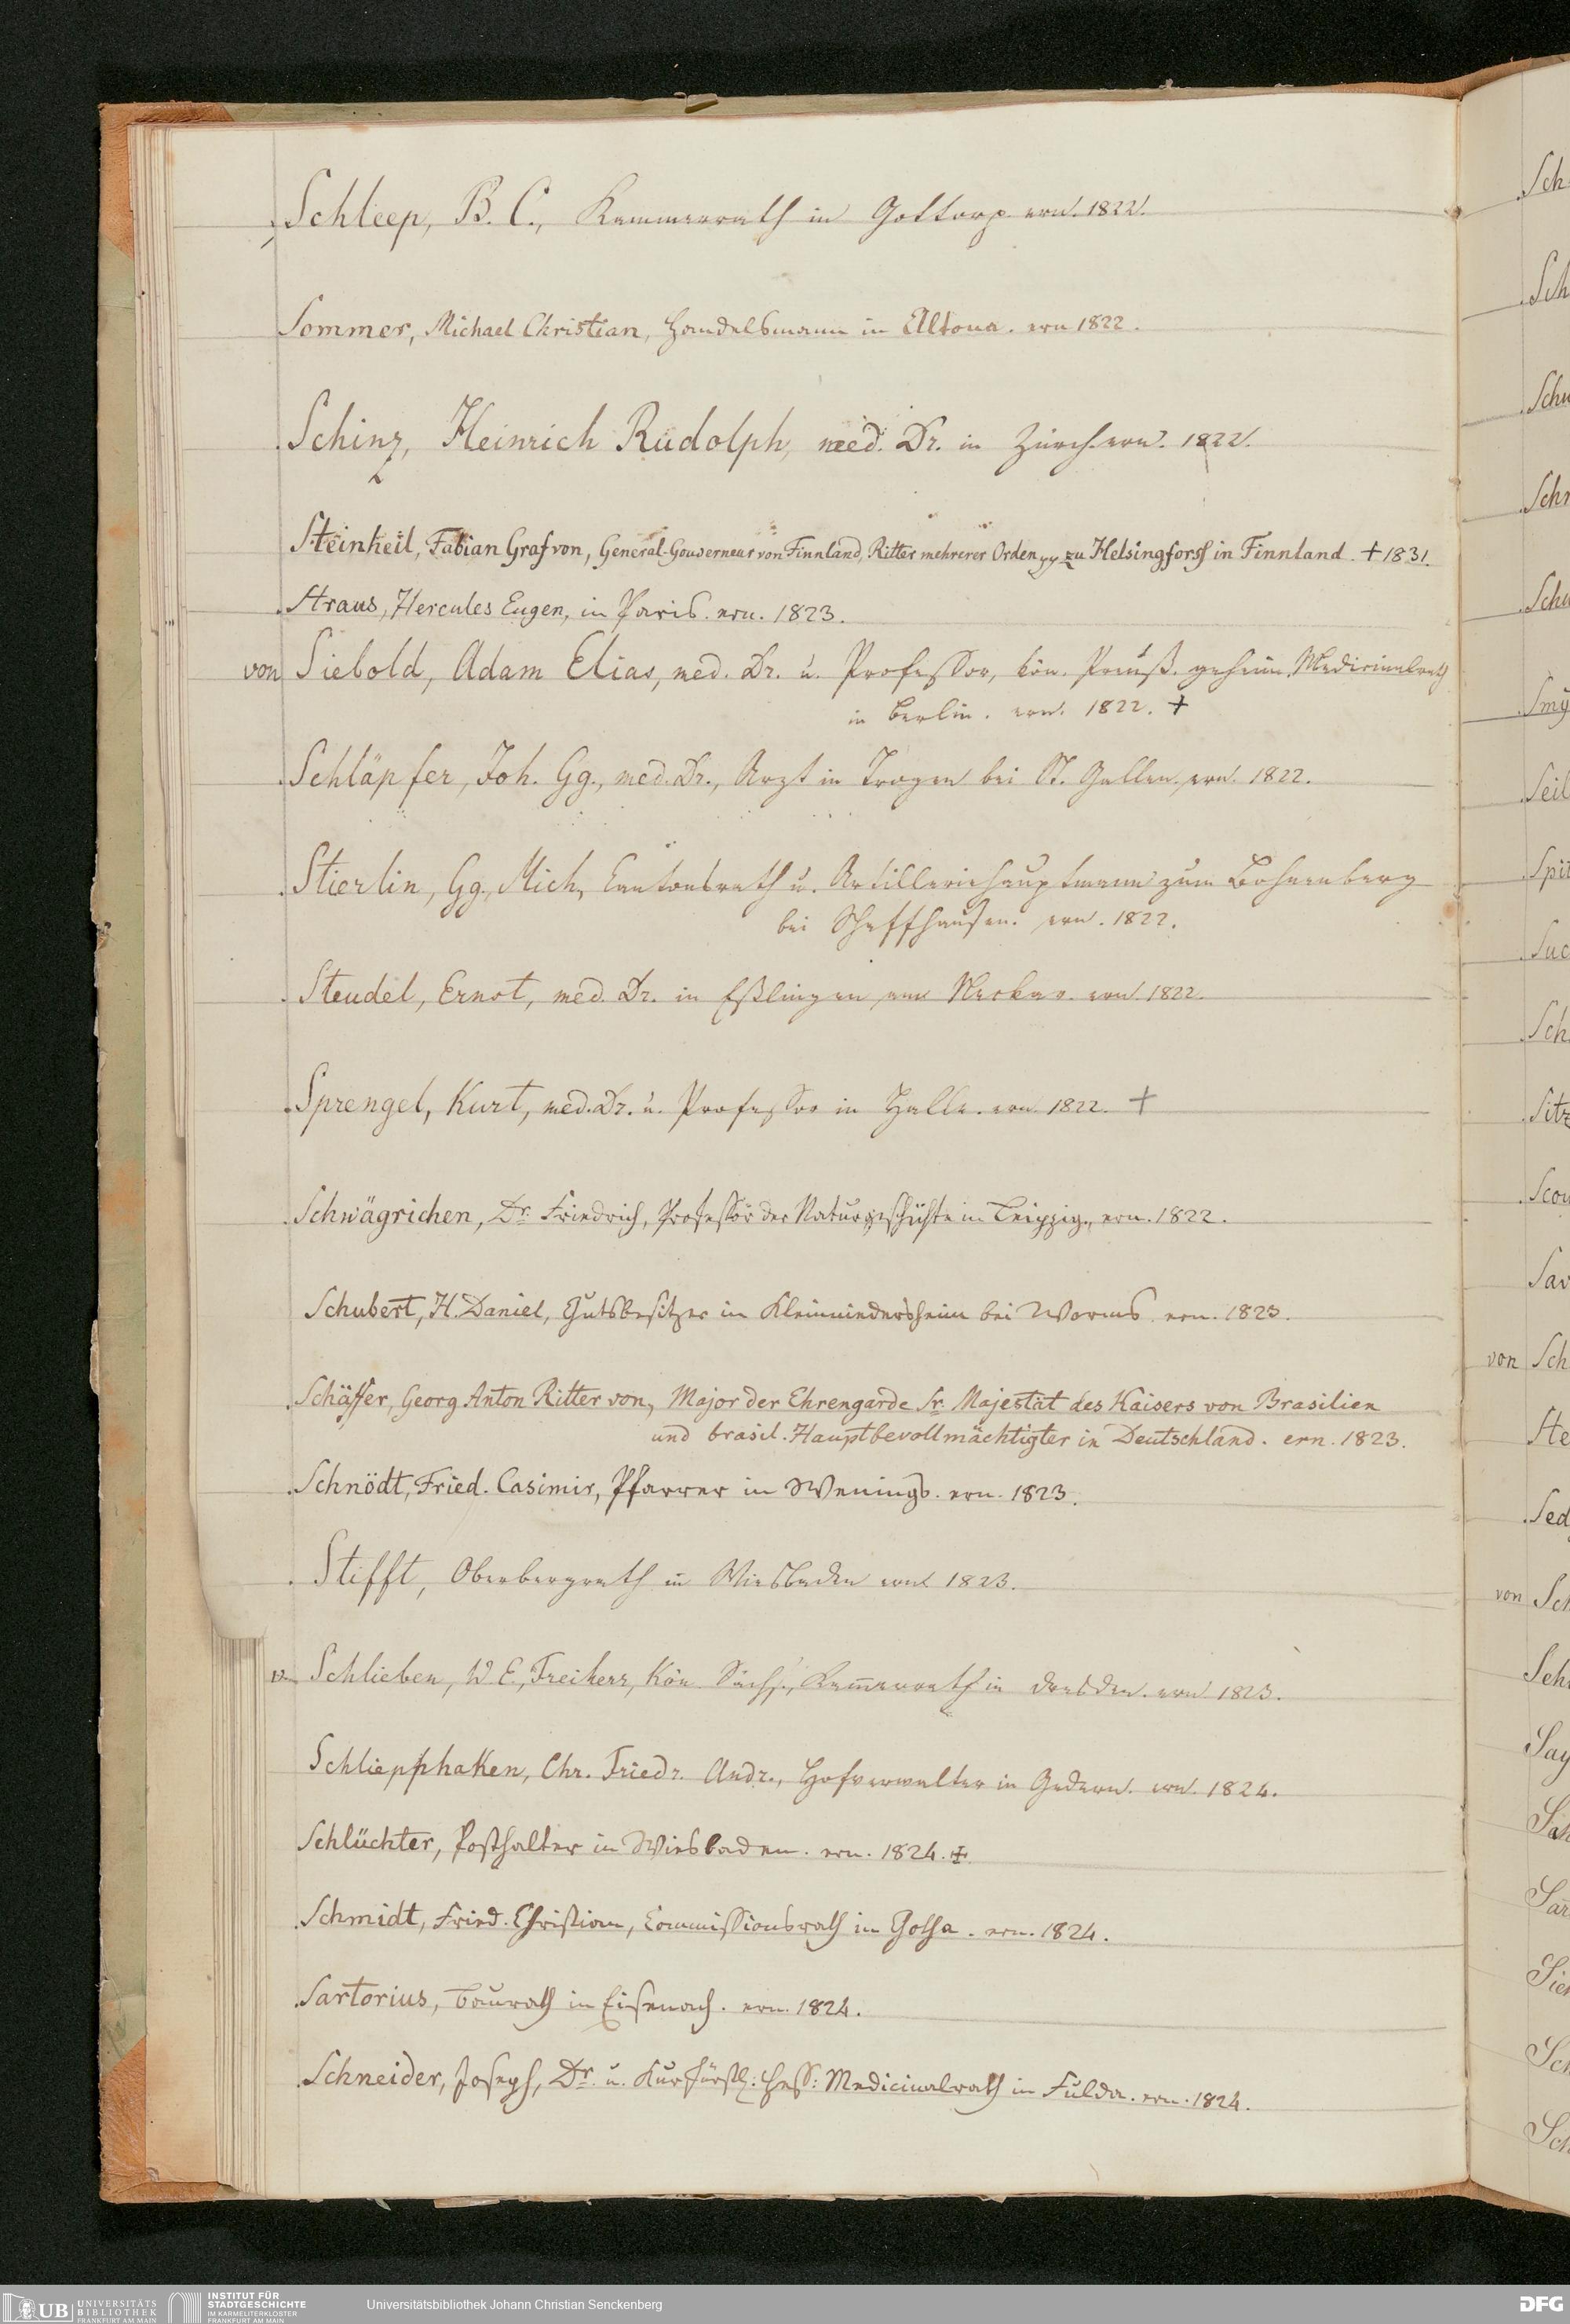 Schleep, B. C., Kammerrath in Gottorp ern. 1822.
Sommer, Michael Christian, Handelsmann in Altona. ern 1822.
Schinz, Heinrich Rudolph, med. Dr. in Zürch. ern. 1822.
Steinheil, Fabian Graf von, General-Gouverneur von Finnland, Ritter mehrerer Orden zu Helsingforss in Finnland. † 1831.
Straus, Hercules Eugen, in Paris. ern. 1823.
von Siebold, Adam Elias, med. Dr. u. Professor, kön. Preuß. geheim. Medicinalrath
in Berlin. ern. 1822. †
Schläpfer, Joh. Gg., med. Dr., Arzt in Trogen bei St. Gallen, ern. 1822.
Stierlin, Gg. Mich., Cantonsrath u. Artilleriehauptmann zum Bohnenberg
bei Schaffhausen. ern. 1822.
Steudel, Ernst, med. Dr. in Eßlingen am Neckar. ern. 1822.
Sprengel, Kurt, med. Dr. u. Professor in Halle. ern. 1822. †
Schwägrichen, Dr. Friedrich, Professor der Naturgeschichte in Leipzig, ern. 1822.
Schubert, H. Daniel, Gutsbesitzer in Kleinniedersheim bei Worms. ern. 1823.
Schäffer, Georg Anton Ritter von, Major der Ehrengarde Sr. Majestät des Kaisers von Brasilien
und brasil. Hauptbevollmächtigter in Deutschland. ern. 1823.
Schnödt, Fried. Casimir, Pfarrer in Wenings. ern. 1823.
Stifft, Oberbergrath in Wiesbaden ern. 1823.
v. Schlieben, W. E., Freiherr, Kön. Sächs., Kam̄errath in Dresden. ern. 1823.
Schliepphaken, Chr. Friedr. Andr., Hofverwalter in Gedern. ern. 1824.
Schlüchter, Posthalter in Wiesbaden. ern. 1824. †
Schmidt, Fried. Christian, Commissionsrath in Gotha. ern. 1824.
Sartorius, Baurath in Eisenach. ern. 1824.
Schneider, Joseph, Dr. u. Kurfürstl: Hess: Medicinalrath in Fulda. ern. 1824.
Sch
Sch
Smÿ
Seil
Spit
Suc
Sch
Sitz
Scou
Sav
von Sch
Ste
Sed
von Sch
Sch
Say
UB UNIVERSITÄTS
BIBLIOTHEK
FRANKFURT AM MAIN
INSTITUT FÜR
STADTGESCHICHTE
IM KARMELITERKLOSTER
FRANKFURT AM MAIN
Universitätsbibliothek Johann Christian Senckenberg
DFG